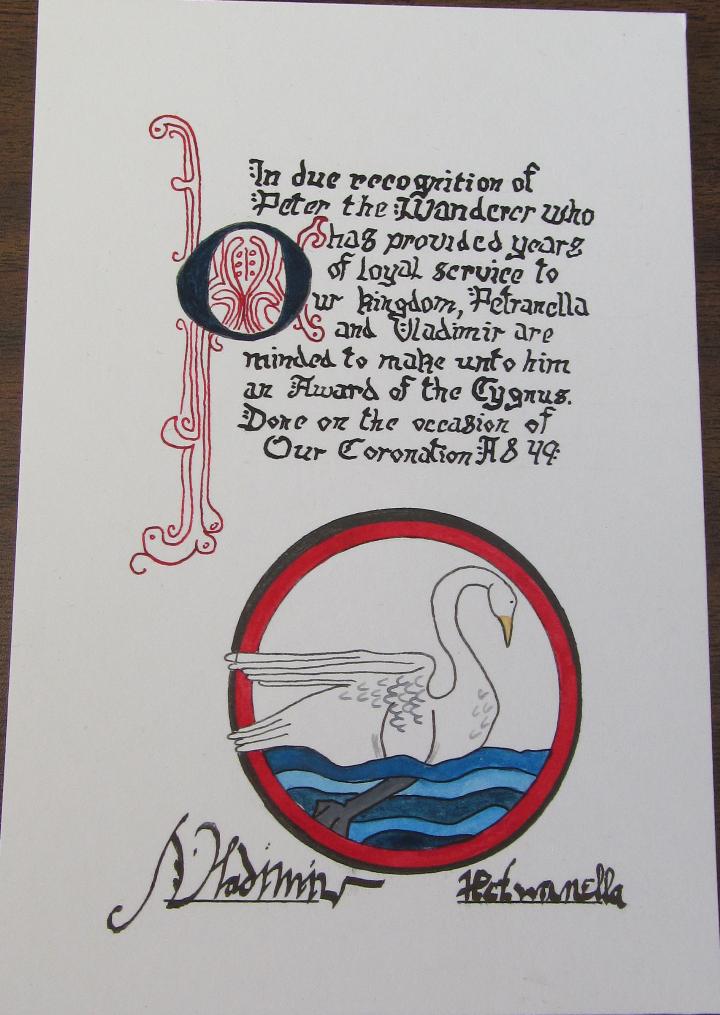 In due recognition of
Peter the Wanderer who
has provided years
of loyal service to
Our kingdom, Petranella
and Vladimir are
minded to make unto him
an Award of the Cygnus.
Done on the occasion of
Our Coronation AS 49.
Vladimir
Petranella